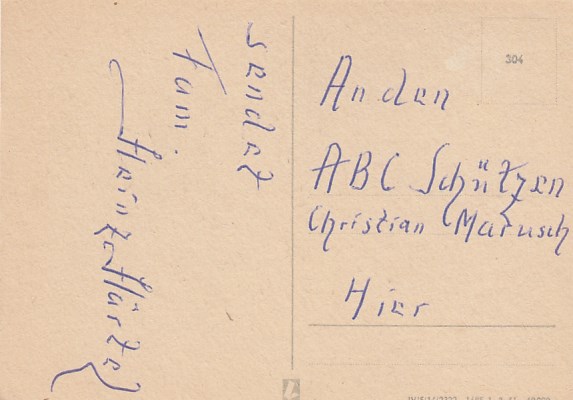 sendet
Fam.
Heinz Härtel
304
An den
ABC Schützen
Christian Marusch
Hier